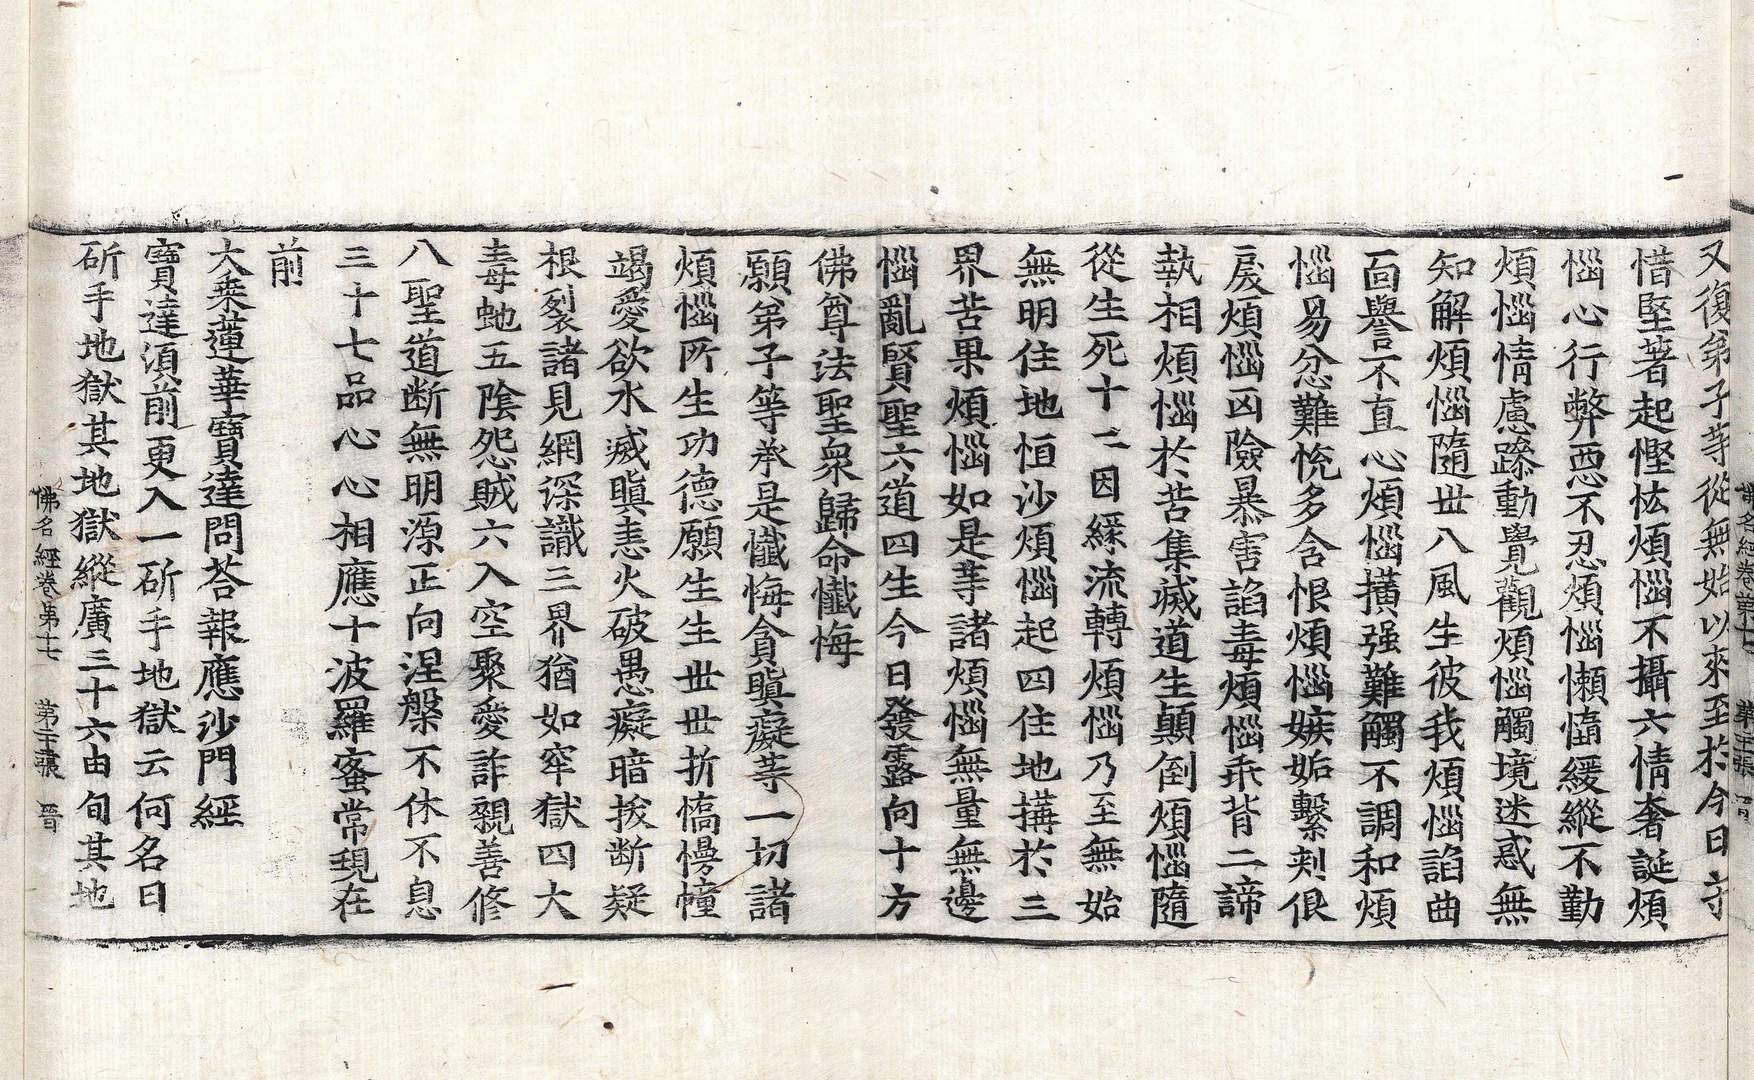 又復弟子等從無始以來至於今日守
惜堅著起慳恡煩惱不攝六情奢誕煩
惱心行弊惡不忍煩惱懶憜緩縱不勤
煩惱情慮躁動覺觀煩惱觸境迷惑無
知解煩惱隨世八風生彼我煩惱諂曲
面譽不直心煩惱擴强難觸不調和煩
惱易忿難悅多含恨煩惱嫉妬繫剌佷
戾煩惱凶險暴害諂毒煩惱乖背二諦
執相煩惱於苦集滅道生顛倒煩惱隨
從生死十二因緣流轉煩惱乃至無始
無明住地恒沙煩惱起四住地搆於三
界苦果煩惱如是等諸煩惱無量無邊
惱亂賢聖六道四生今日發露向十方
佛尊法聖衆歸命懺悔
願弟子等承是懺悔貪瞋癡等一切諸
煩惱所生功德願生生世世折憍慢幢
竭愛欲水滅瞋恚火破愚癡暗拔断疑
根裂諸見網深識三界猶如牢獄四大
毒蛇五陰怨賊六入空聚愛詐親善修
八聖道断無明源正向涅槃不休不息
三十七品心心相應十波羅蜜常現在
前
大乘蓮華寶達問荅報應沙門經
寶達湏前更入一斫手地獄云何名曰
斫手地獄其地獄縱廣三十六由旬其地
佛名經卷第十七 第二十張 晋